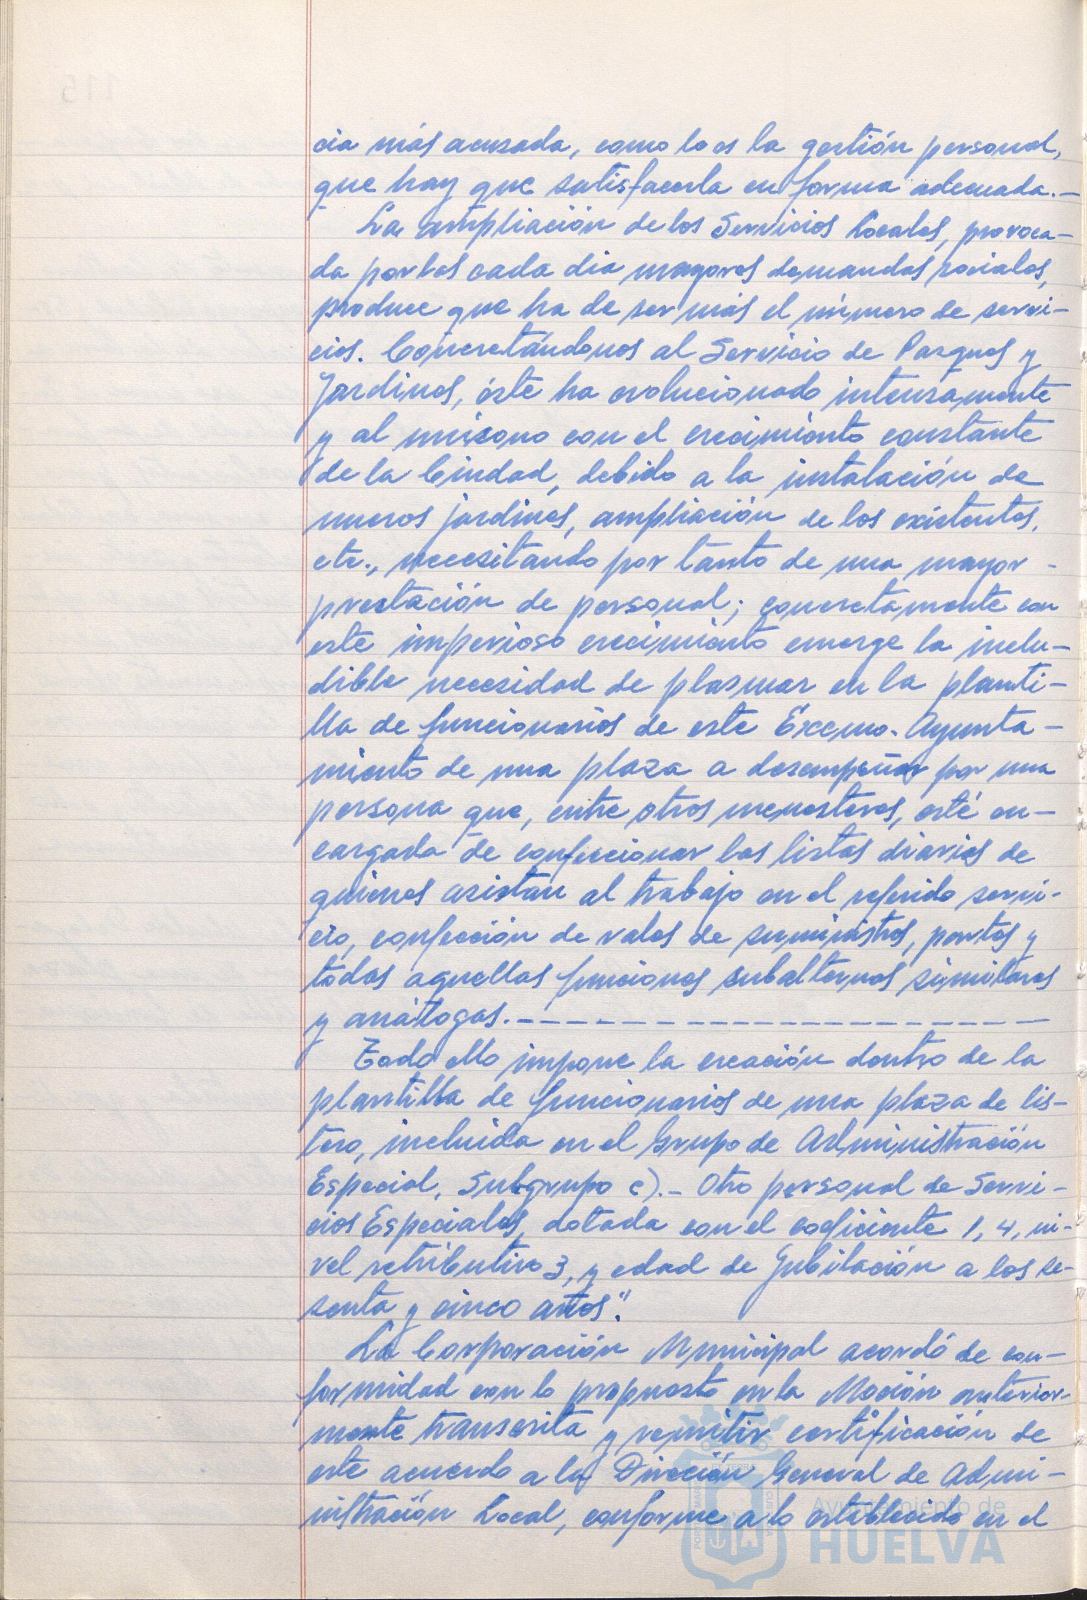 cia más acusada, como lo es la gestión personal,
que hay que satisfacerla en forma adecuada.—
La ampliación de los Servicios Locales, provoca-
da por las cada dia mayores demandas sociales,
produce que ha de ser más el número de servi-
cios. Concretándonos al Servicio de Parques y
Jardines, éste ha evolucionado intensamente
y al unísono con el crecimiento constante
de la Ciudad, debido a la instalación de
nuevos jardines, ampliación de los existentes,
etc., necesitando por tanto de una mayor -
prestación de personal; concretamente con
este imperioso crecimiento emerge la inelu-
dible necesidad de plasmar en la planti-
lla de funcionarios de este Excmo. Ayunta-
miento de una plaza a desempeñar por una
persona que, entre otros menesteres, esté en-
cargada de confeccionar las listas diarias de
quienes asistan al trabajo en el referido servi-
cio, confección de vales de suministros, partes y
todas aquellas funciones subalternas similares
y análogas.- - - - - - - - - - - - - - - - -
Todo ello impone la creación dentro de la
plantilla de funcionarios de una plaza de lis-
tero, incluida en el Grupo de Administración
Especial, Subgrupo c).- Otro personal de Servi-
cios Especiales, dotada con el coeficiente 1,4, ni-
vel retributivo 3, y edad de Jubilación a los se-
senta y cinco años".
La Corporación Municipal acordó de con-
formidad con lo propuesto en la Moción anterior-
mente transcrita y remitir certificación de
este acuerdo a la Dirección General de Admi-
nistración Local, conforme a lo establecido en el
Ayuntamiento de
HUELVA